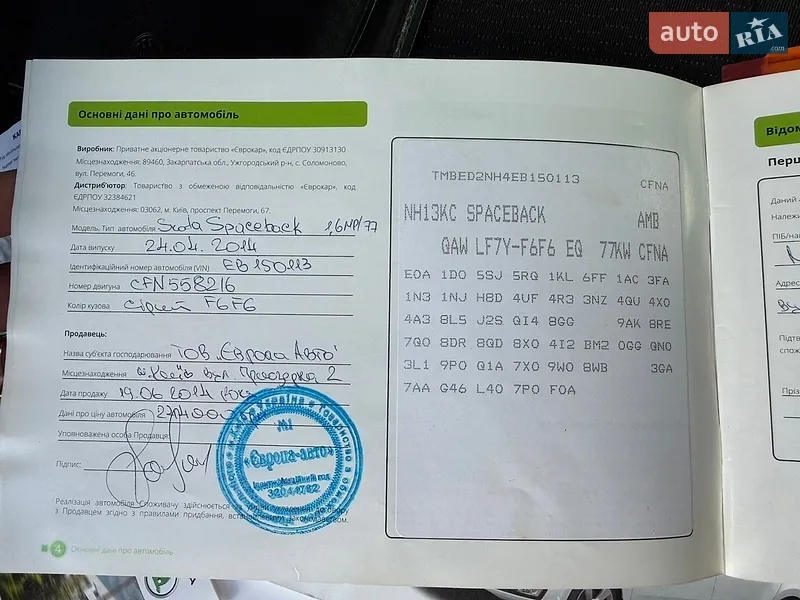 auto RIA .com
Основні дані про автомобіль
Виробник: Приватне акціонерне товариство «Єврокар», код ЄДРПОУ 30913130
Місцезнаходження: 89460, Закарпатська обл., Ужгородський р-н, с. Соломоново,
вул. Перемоги, 46.
Дистриб'ютор: Товариство з обмеженою відповідальністю «Єврокар», код
ЄДРПОУ 32384621
Місцезнаходження: 03062, м. Київ, проспект Перемоги, 67.
Модель. Тип автомобіля Scoda Spaceback 1,6МРІ/77
Дата випуску 24.04.2014
Ідентифікаційний номер автомобіля (VIN) EB150113
Номер двигуна CFN558216
Колір кузова сірий F6F6
Продавець:
Назва суб'єкта господарювання ТОВ „Європа Авто"
Місцезнаходження м. Київ вул. 2
Дата продажу 19.06.2014 року
Дані про ціну автомобіля
Уповноважена особа Продавця:
Підпис:
«Європа-авто»
Ідентифікаційний код
Реалізація автомобіля Споживачу здійснюється
з Продавцем згідно з правилами придбання, законодавством.
4 Основні дані про автомобіль
TMBED2NH4EB150113 CFNA
NH13KC SPACEBACK AMB
QAW LF7Y-F6F6 EQ 77KW CFNA
E0A 1D0 5SJ 5RQ 1KL 6FF 1AC 3FA
1N3 1NJ H8D 4UF 4R3 3NZ 4QU 4X0
4A3 8L5 J2S QI4 8GG 9AK 8RE
7Q0 8DR 8QD 8X0 4I2 BM2 0GG QN0
3L1 9P0 Q1A 7X0 9W0 8WB 3GA
7AA G46 L40 7P0 F0A
Відом
Перш
Даний
Належи
ПІБ/на
Адрес
Підтв
спож
Пріз